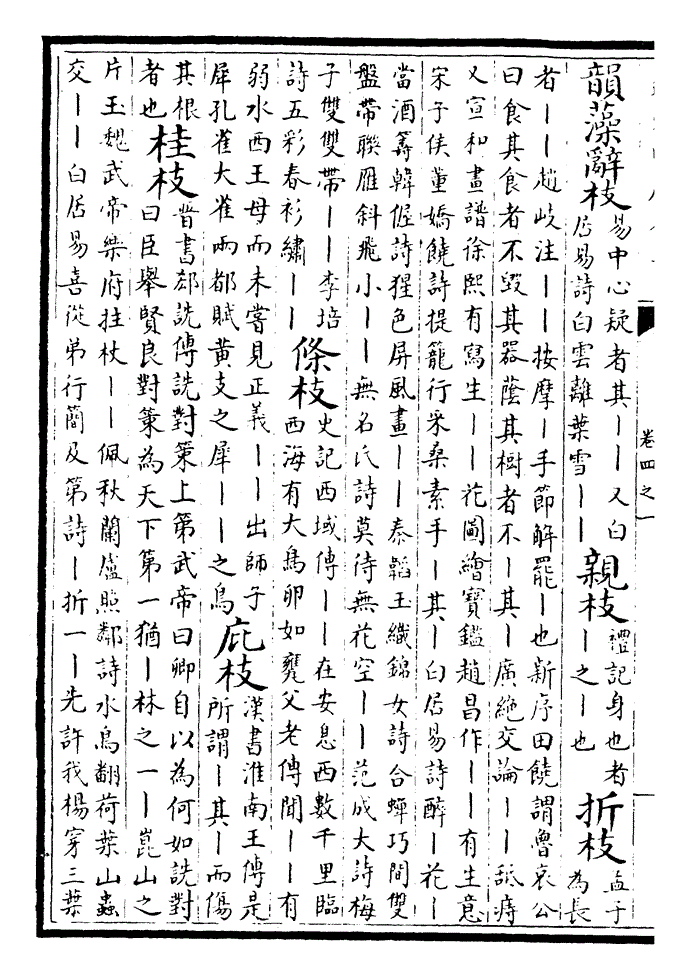 韻藻辭枝易中心疑者其丨丨又白
居易詩白雲離葉雪丨丨
親枝禮記身也者
丨之丨也
折枝孟子
為長
者丨丨趙岐注丨丨按摩丨手節解罷丨也新序田饒謂魯哀公
曰食其食者不毀其器蔭其樹者不丨其丨廣絶交論丨丨舐痔
又宣和畫譜徐熙有寫生丨丨花圖繪寶鑑趙昌作丨丨有生意
宋子侯董嬌饒詩提籠行采桑素手丨其丨白居易詩醉丨花丨
當酒籌韓偓詩猩色屏風畫丨丨秦韜玉織錦女詩合蟬巧間雙
盤帶聯雁斜飛小丨丨無名氏詩莫待無花空丨丨范成大詩梅
子雙雙帶丨丨李培
詩五彩春衫繡丨丨
條枝史記西域傳丨丨在安息西數千里臨
西海有大鳥卵如甕父老傳聞丨丨有
弱水西王母而未嘗見正義丨丨出師子
犀孔雀大雀兩都賦黃支之犀丨丨之鳥
庇枝漢書淮南王傳是
所謂丨其丨而傷
其根
者也
桂枝晉書郄詵傳詵對策上第武帝曰卿自以為何如詵對
曰臣舉賢良對策為天下第一猶丨林之一丨崑山之
片玉魏武帝樂府拄杖丨丨佩秋蘭盧照鄰詩水鳥翻荷葉山蟲
交丨丨白居易喜從弟行簡及第詩丨折一丨先許我楊穿三葉
卷四之一